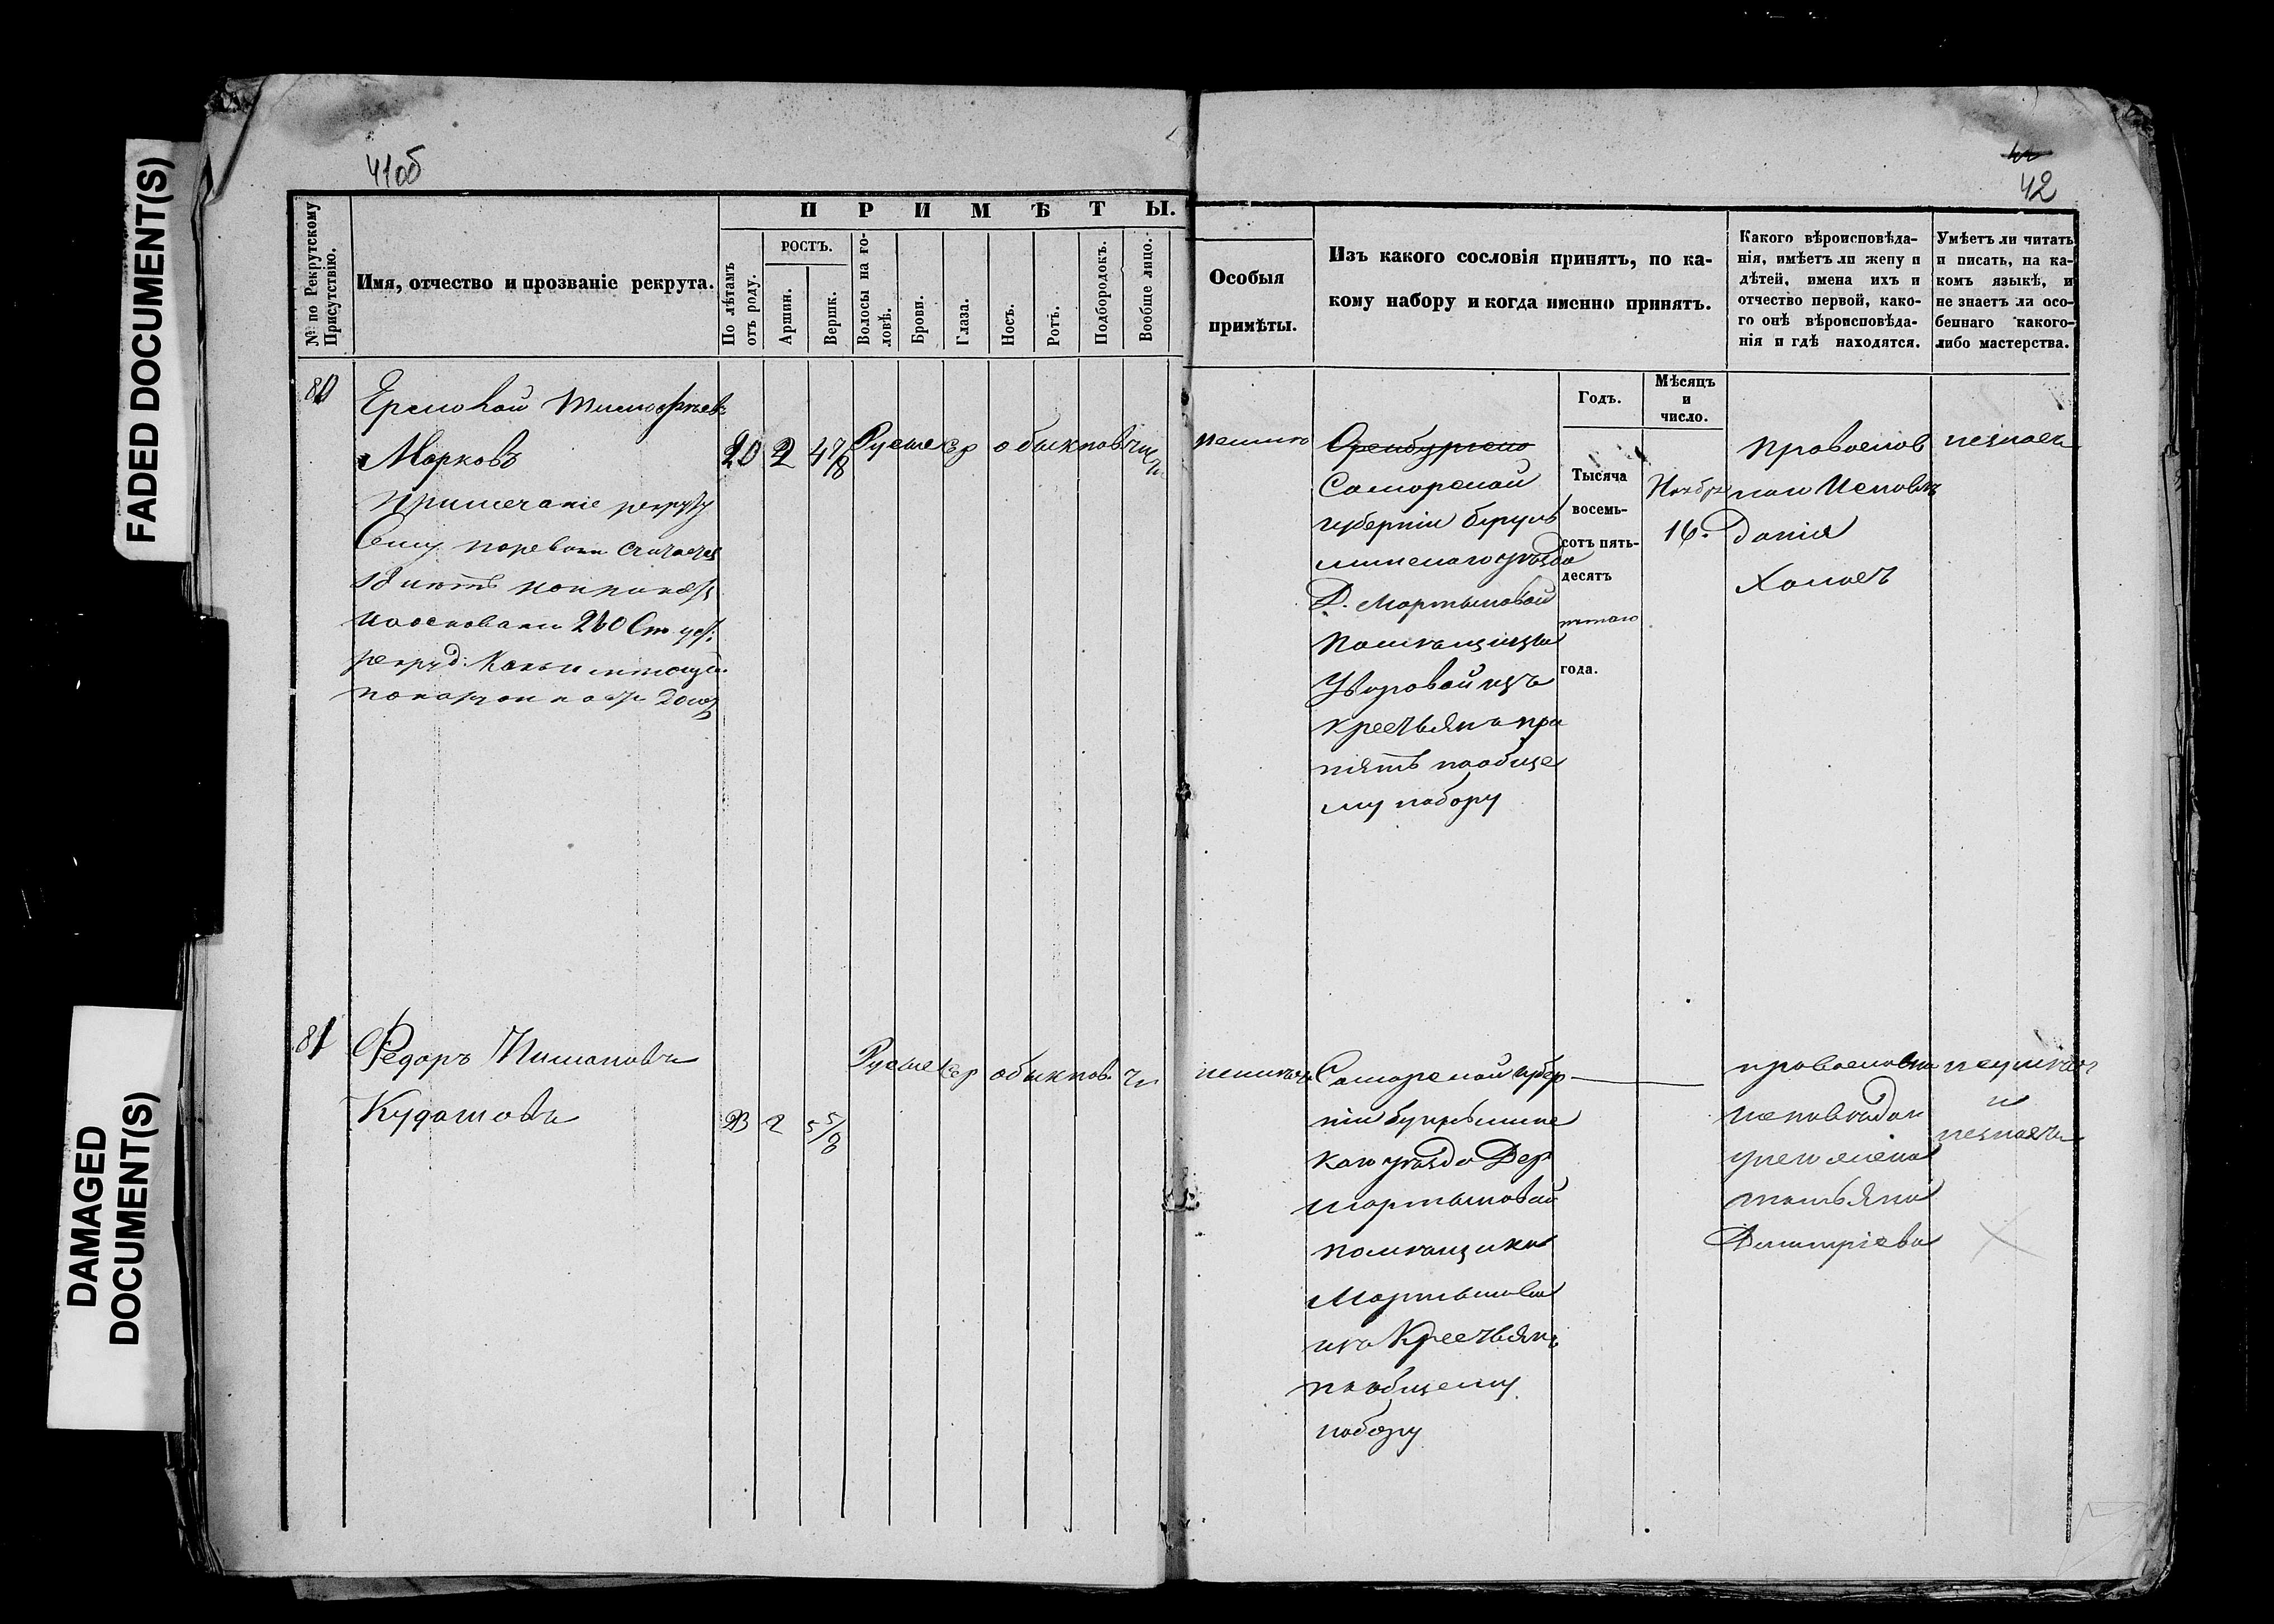 FADED DOCUMENT(S)
DAMAGED
DOCUMENT(S)
41об
42
№ по Рекрутскому
Присутствію.
Имя, отчество и прозваніе рекрута.
ПРИМѢТЫ.
По лѣтамъ
отъ роду.
РОСТЪ.
Аршин.
Вершк.
Волосы на го-
ловѣ.
Брови.
Глаза.
Носъ.
Ротъ.
Подбородокъ.
Вообще лицо.
Особыя
примѣты.
Изъ какого сословія принятъ, по ка-
кому набору и когда именно принятъ.
Какого вѣроисповѣда-
нія, имѣетъ ли жену и
дѣтей, имена ихъ и
отчество первой, како-
го онѣ вѣроисповѣда-
нія и гдѣ находятся.
Умѣетъ ли читать
и писать, на ка-
комъ языкѣ, и
не знаетъ ли осо-
беннаго какого-
либо мастерства.
Годъ.
Мѣсяцъ
и
число.
80
Ермолай Тимофѣевъ
Марковъ
Примечаніе рекруту
Сему
18 лѣтъ
20 2 4 7/8 Русые Сер обыкнов чи
Оренбургско
Самарской
губерніи бугуль
минского уѣзда
Д. Мартыновой
Помѣщицы
Уваровой изъ
крестьянъ при
нятъ пообще
му набору
Тысяча
восемь-
сотъ пять-
десятъ
пятаго
года.
Ноября
16.
Православ
наго Исповѣ
Данія
Холостъ
незнаетъ
81
Федоръ
Кудашовъ
23 2 5 5/8
Русые Сер обыкнов. чи
Самарской губер
ніи бугульминс
каго уѣзда Дер
мартыновой
помѣщика
Мартынова
изъ Крестьянъ
пообщему
набору
православна
исповѣдан
у него жена
татьяна
Дмитріева
неумѣетъ
и
незнаетъ